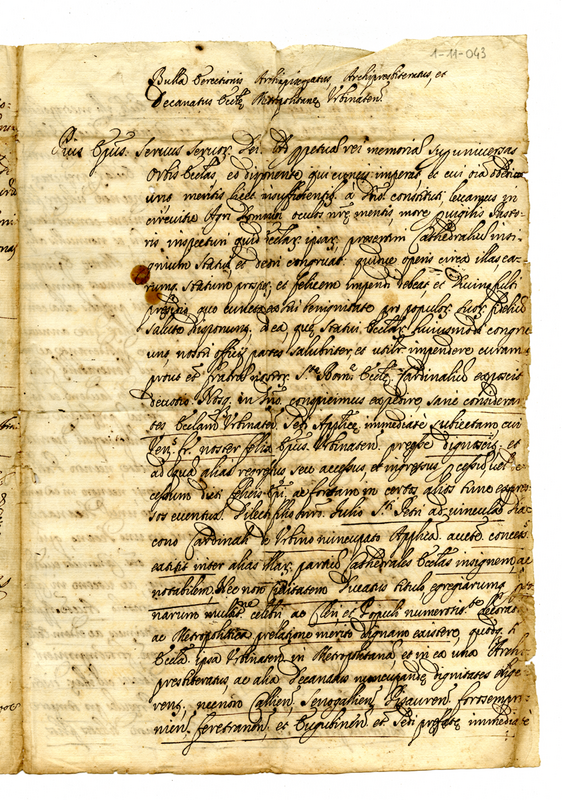 1-11-043
Bulla Erectionis Archiepiscopatus, Archipresbiteratus, et
Decanatus Eccle Metropolitane Urbinaten
Pius Epus: Servus Servor. Dei. Ad perpetua rei memoria Super universas
Orbis Ecclas, eo disponente qui cunctis imperat et cui oia obediunt
meritis licet insufficientib. a Dno. constituti, levamus in
circuitu Agri Dominici oculos nre mentis more vigilis Pasto-
ris inspecturi quid Ecclar. ipsar. presertim Cathedraliu insi-
gnium Statui et decori congruat: quidve operis circa illas, ea-
rumq. Statum prosper. et felicem impendi debeat et Divino fulti
presidio, quo cuncta ex sui benignitate pro populor. suor. fideliu
Salute disponuntur, ad ea, que Statui Ecclar. huiusmodi congrue
nostri officii partes salubriter, et utilr. impendere curam,
prout et fratrum nostror. S.te Rom. Eccle Cardinaliu exposcit
devotio. Nosq. in Dno. conspicimus expedire, Sane consideran
tes Ecclam Urbinaten Sedi Aplice immediate subiectam, cui
Ven. fr. noster felix Epus. Urbinaten preesse dignoscit; et
ad qua alias regressus seu accessus, et ingressus p cessu vel de
cessum dicti felicis Epi. ac foetam in certos alios tunc expres
sos eventus. Dilecto filio nro. Julio S.ti Petri ad vincula Dia
cono Cardinali de Urbino nuncupato Aplica aucte concess.
extitit inter alias illar. partiu Cathedrales Ecclas insignem ac
notabilem. Nec non Civitatem Ducatus titulo egregiarumq.
narum celebri ac Cleri, et Populi numerosit.e decora
ac Metropolitica prelatione merito dignam existere, quodq. si
Eccla ipsa Urbinaten in Metropolitana et in ea una Archi
presbiteratus ac alia Decanatus nuncupande dignitates erige
rent. necnon Callien. Senogallien. Pisauren. forosempro
nien. feretranen. et Eugubinen. et Sedi prefate immediate